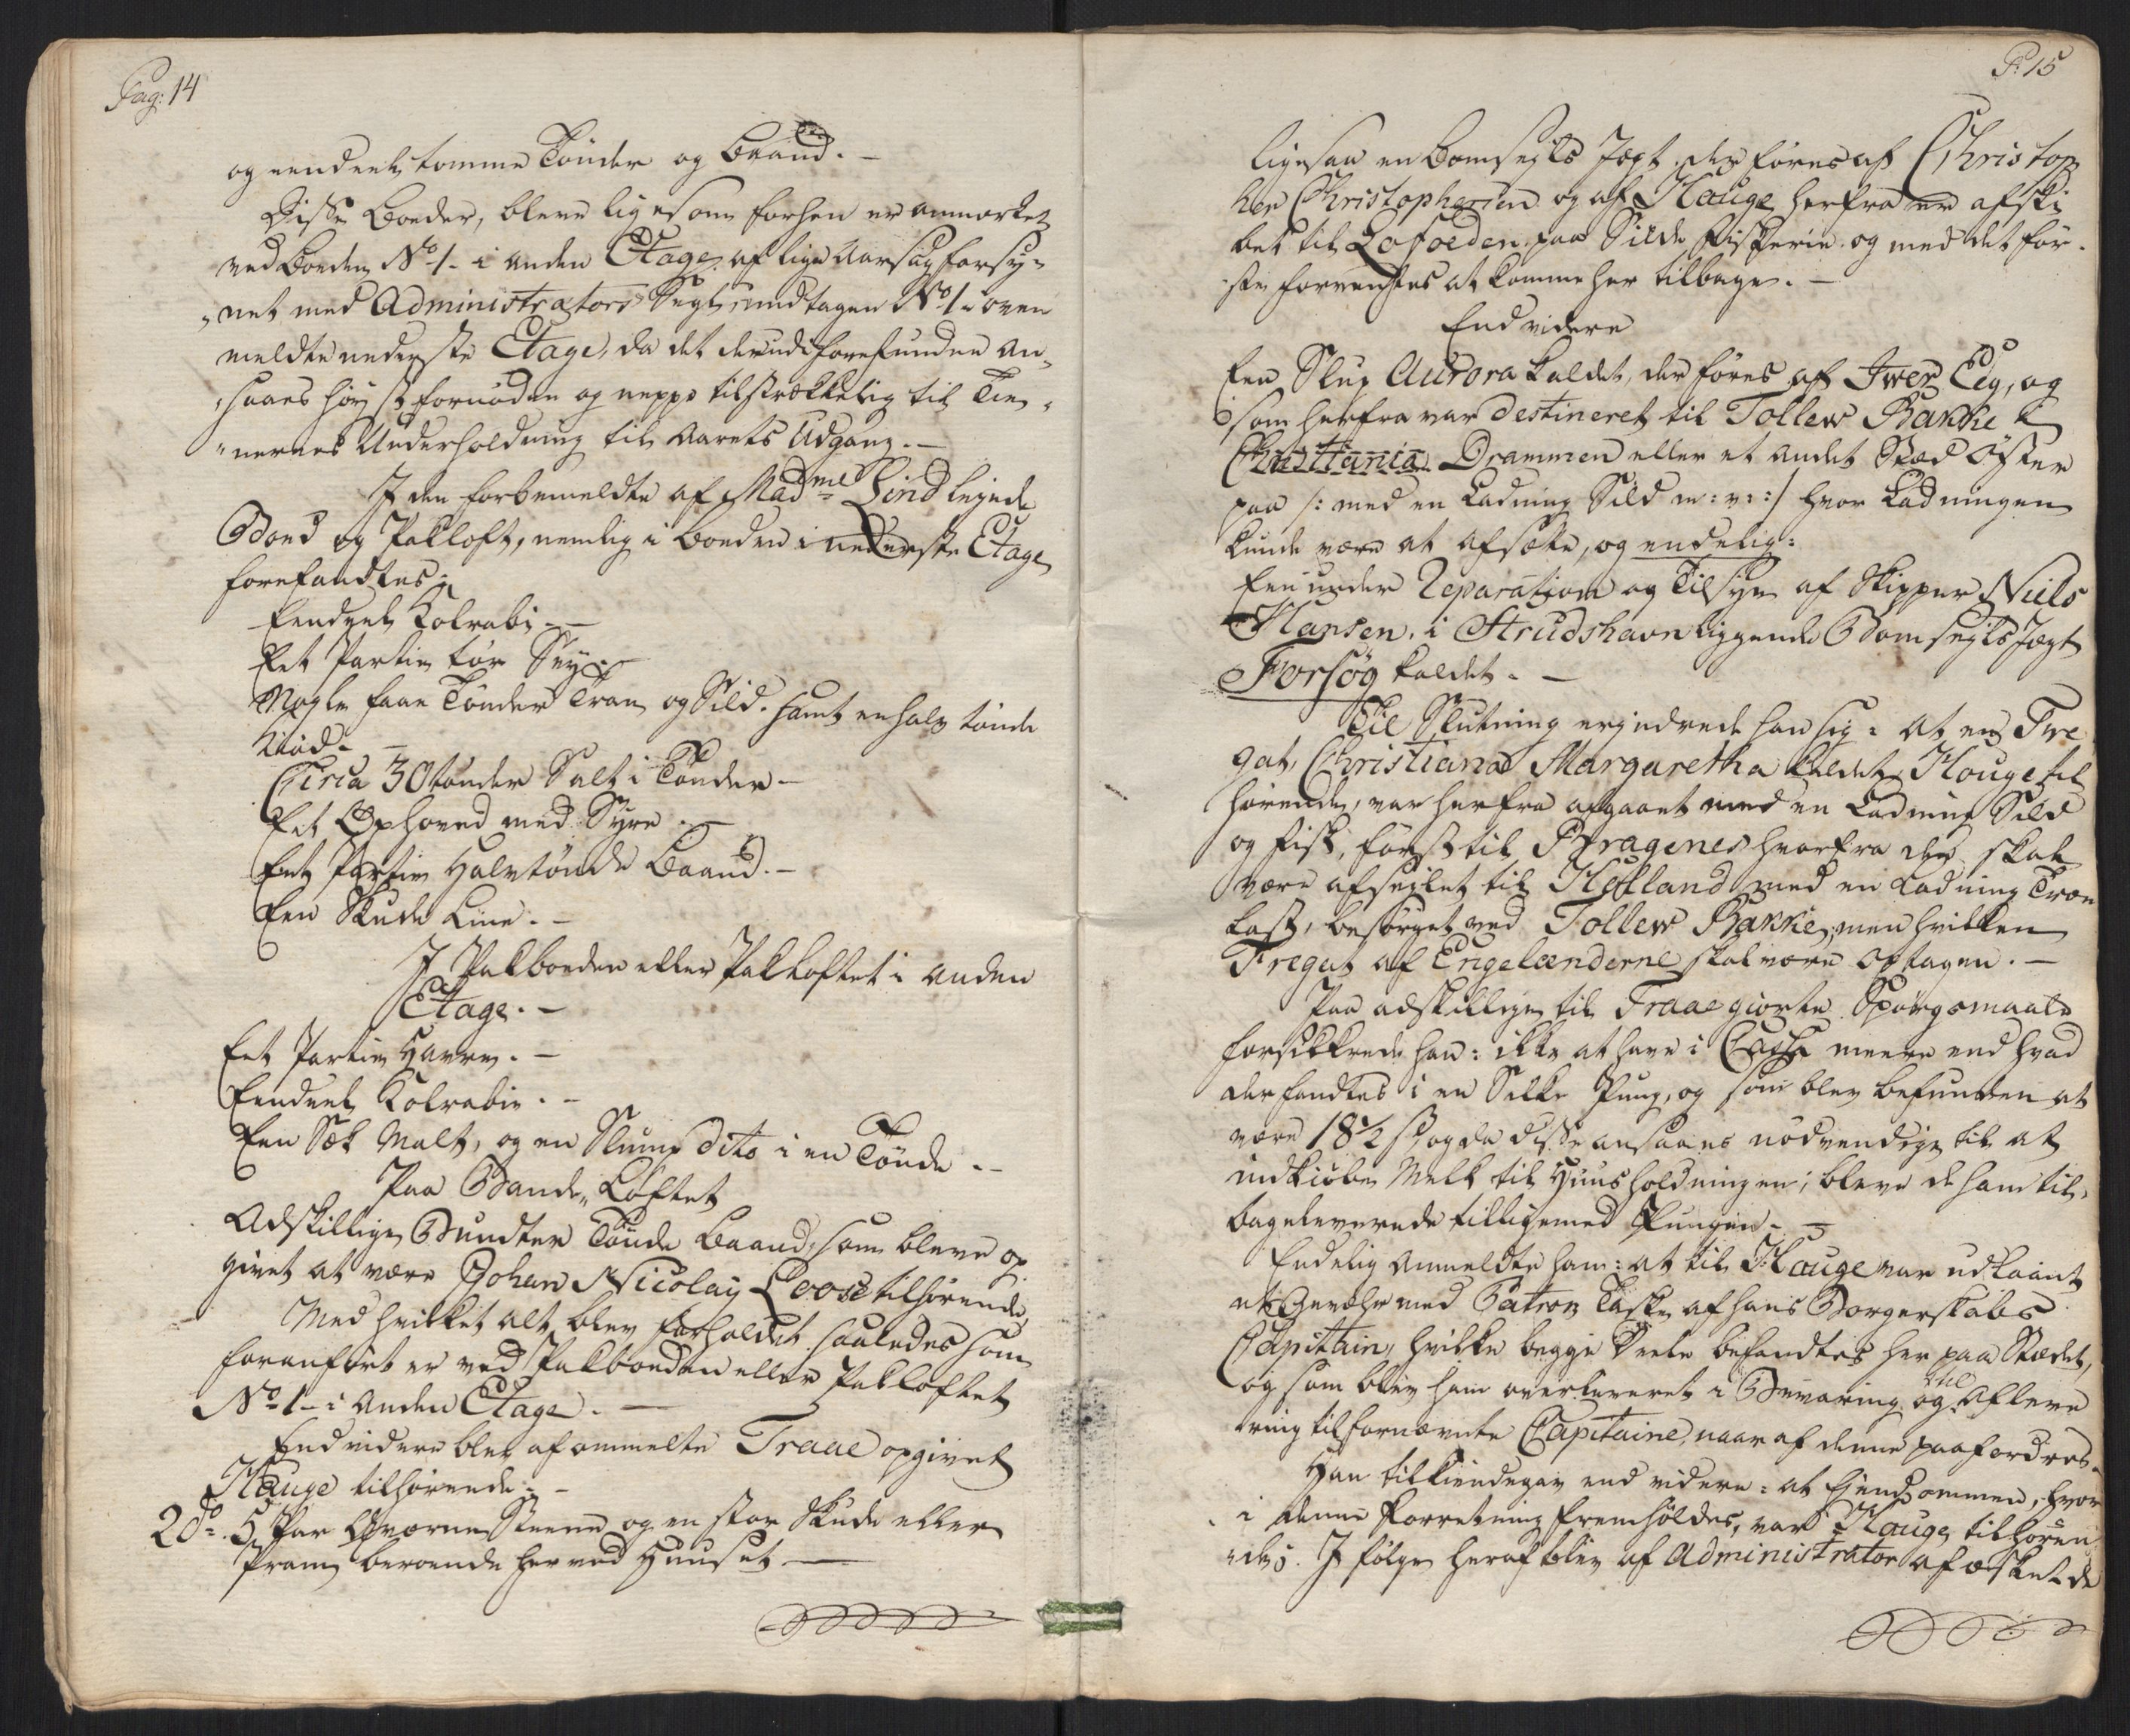 Pag: 14
og eendeel tomme Tønder og Baand. –
Disse Boeder, bleve ligesom forhen er anmærket
ved Boeden No 1 - i anden Etage, af lige Aarsag forsy-
„net med Administrators Segl, undtagen No 1 - oven
meldte nederste Etage, da det derudi forefundne an-
„saaes høyst fornøden og neppe tilstrækkelig til Tie-
„nernes Underholdning til Aarets Udgang. –
I den forbemeldte af Madme Lind leyede
Boed og Pakloft, nemlig i Boeden i nederste Etage
forefandtes:
Eendeel Kolrabi –
Eet Partie tør Sey –
Nogle faae Tønder Tran og Sild. samt en halv tønde
Kiød. –
Circa 30 tønder Salt i Tønder –
Eet Oxhoved med Syre –
Eet Partie Halvtønde Baand. –
Een Skude Line. –
I Pakboeden eller Pakloftet i anden
Etage. –
Eet Partie Havre. –
Eendeel Kolrabie. –
Een Sæk Malt, og en Slump dito i en Tønde. –
Paa Bande„Loftet
Adskillige Bundter Tønde Baand, som bleve op
givet at være Johan Nicolay Loose tilhørende,
Med hvilket alt blev forholdet saaledes som
foranført er ved Pakboeden eller Pakloftet
No 1 - i anden Etage. –
End videre blev af ommelte Traae opgivet
Hauge tilhørende: –
2do. 5 Par Qværne Steene og en stor Skude eller
Pram beroende her ved Huuset. –
P: 15
ligesaa en Bomseyls Jagt. der føres af Christop
her Christophersen og af Hauge herfra er afski
bet til Lofoeden paa Silde Fiskerie og med det før-
ste forventes at komme her tilbage. –
End videre
Een Slup Aurora kaldet, der føres af Iwer Eeg, og
som herfra var destineret til Tollew Bakke i
Christiania Drammen eller et andet Stæd Øster
paa /: med en Ladning Sild m: v: :/ hvor Ladningen
kunde være at afsætte, og endelig:
Een under Reparation og Tilsyn af Skipper Niels
Hansen, i Strudshavn liggende Bomseyls Jagt
Forsøg kaldet. –
Til Slutning erindrede han sig: at en Fre
gat, Christiana Margaretha kaldet, Houge til
hørende, var herfra afgaaet med en Ladning Sild
og Fisk, først til Bragenes hvorfra den skal
være afseylet til Holland med en Ladning Træ
last, besørget ved Tollew Bakke, men hvilken
Fregat af Engelænderne skal være optagen. –
Paa adskillige til Traae giorte Spørgsmaale
forsikkrede han: ikke at have i Cassa meere end hvad
der fandtes i en Silke Pung, og som blev befunden at
være 18½ ß og da disse ansaaes nødvendige til at
indkiøbe Melk til Huusholdningen; bleve de ham til-
bageleverede tilligemed Pungen. –
Endelig anmeldte ham: at til Hauge var udlaant
et Gevæhr med Patron Taske af hans Borgerskabs
Capitain, hvilke begge Deele befandtes her paa Stædet,
og som blev ham overleveret i Bevaring og til Afleve
ring til fornævnte Capitaine, naar af denne paafordres. –
Han tilkiendegav end videre: at Eiendommen, hvor
i denne Forretning fremholdes, var Hauge tilhøren
„des. I følge heraf blev af Administrator afæskede